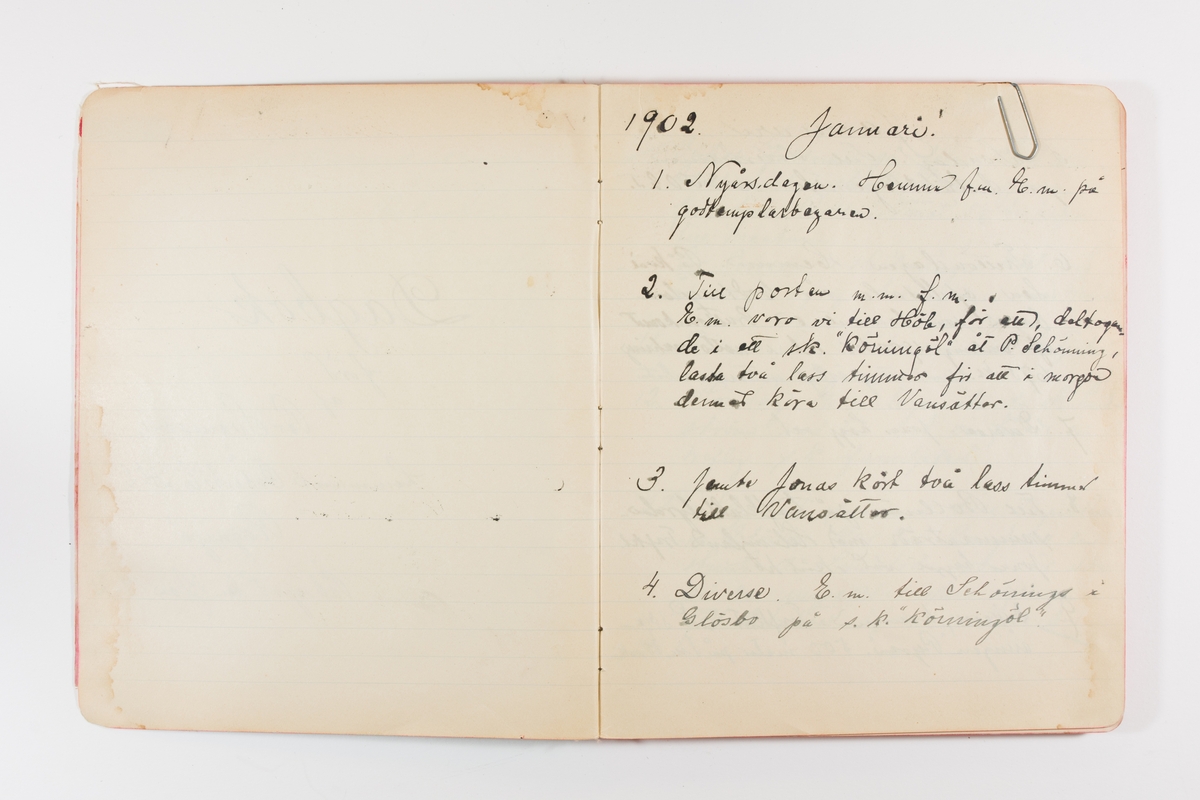 1902. Januari!
1. Nyårsdagen. Hemma f.m. E.m. på
godtemplarbazaren.
2. Till posten m.m. f.m.
E.m. voro vi till Höle, för att, deltagan-
de i ett s.k. "körningöl" åt P. Schönning,
lasta två lass timmer för att i morgon
dermed köra till Vansätter.
3. Jemte Jonas kört två lass timmer
till Vansätter.
4. Diverse. E.m. till Schönnings i
Glösbo på s.k. "körningöl".
Dagbok